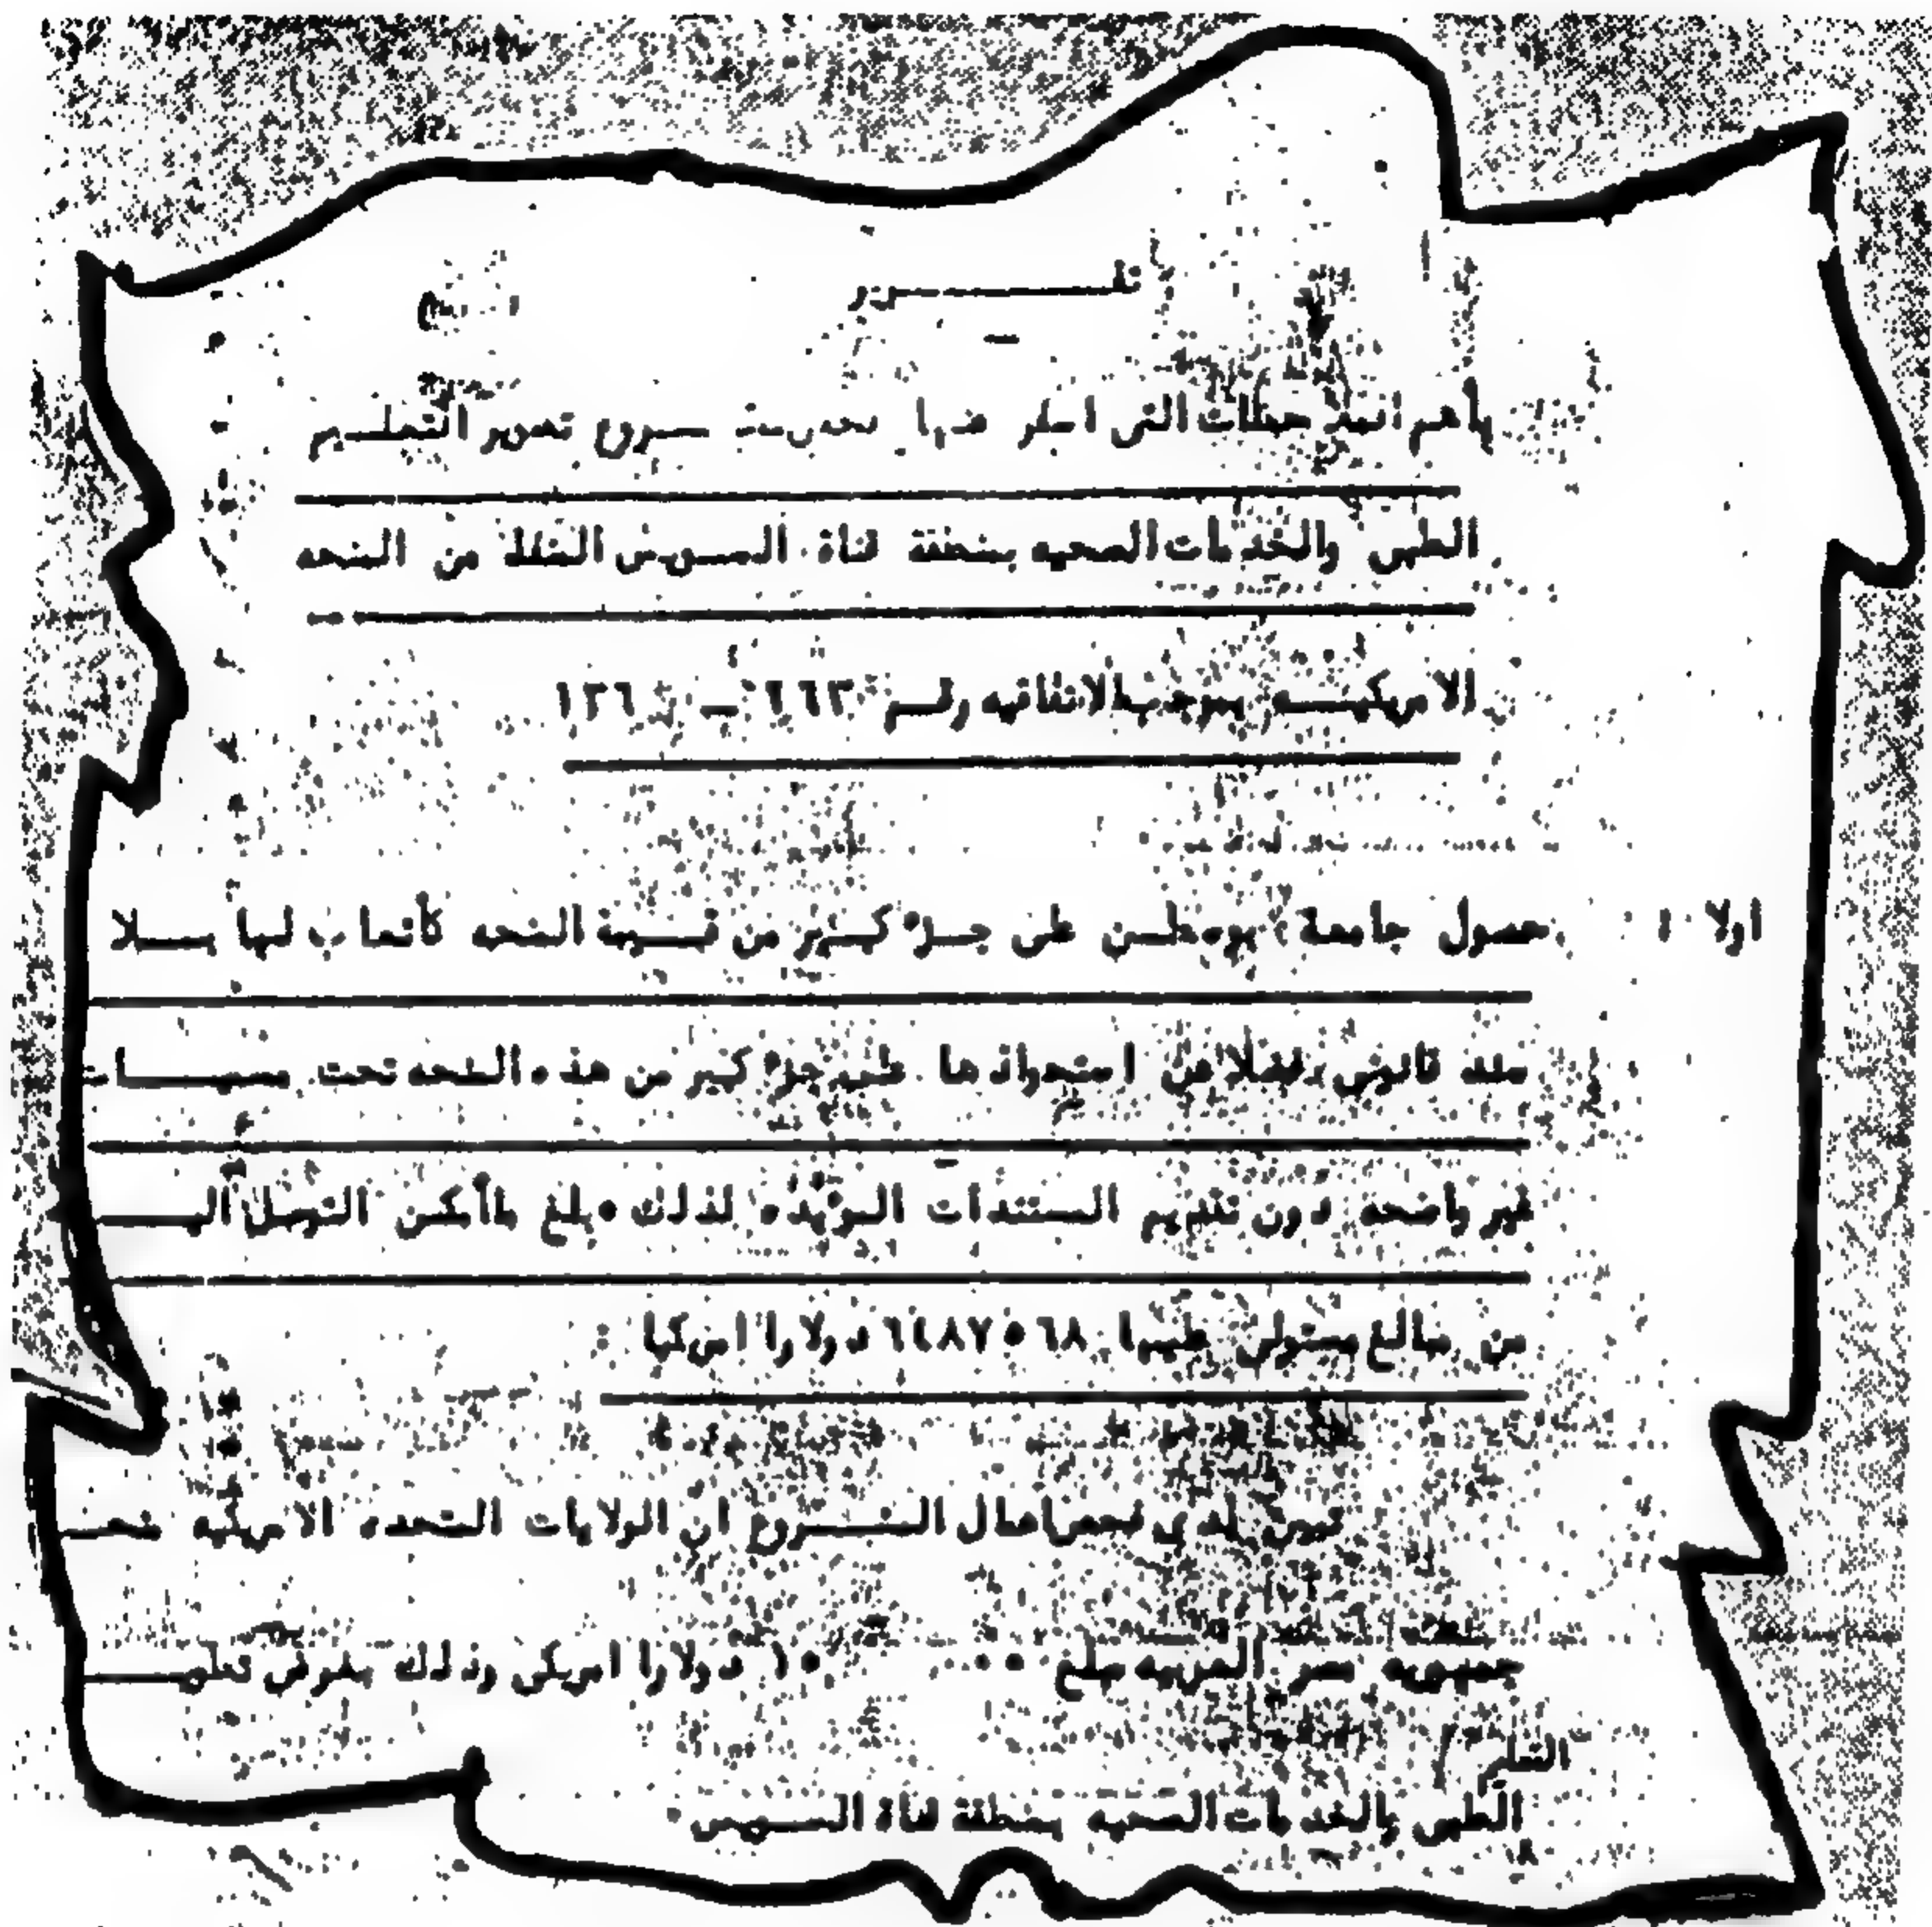 تقرير
بأهم الملاحظات التى اسفر عنها فحص مشروع تطوير التعليم
الطبى والخدمات الصحيه بمنطقة قناة السويس المنفذ من المنحه
الامريكيه بموجب الاتفاقيه رقم ٢٦٣ –
اولا : حصول جامعة بوسطن على جزء كبير من قيمة المنحه كأتعاب لها بلا
سند قانونى فضلا عن استحواذها على جزء كبير من هذه المنحه تحت مسميات
غير واضحه دون تقديم المستندات المؤيده لذلك وبلغ ما أمكن التوصل اليه
من مبالغ مستولى عليها ٦٤٨٧٥٦٨ دولارا امريكيا :
تبين لدى فحص اعمال المشروع ان الولايات المتحده الامريكيه منحت
جمهوريه مصر العربيه مبلغ دولارا امريكى وذلك بغرض
التعليم
الطبى والخدمات الصحيه بمنطقة قناة السويس